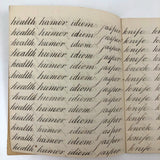 health humor idiom jasper knife k
health humor idiom jasper knife k
health humor idiom jasper knife k
health humor idiom jasper knife k
health humor idiom jasper knife k
health humor idiom jasper knife k
health humor idiom jasper knife k
health humor idiom jasper knife k
health humor idiom jasper knife k
health humor idiom jasper knife k
health humor idiom jasper knife k
health humor idiom jasper knife k